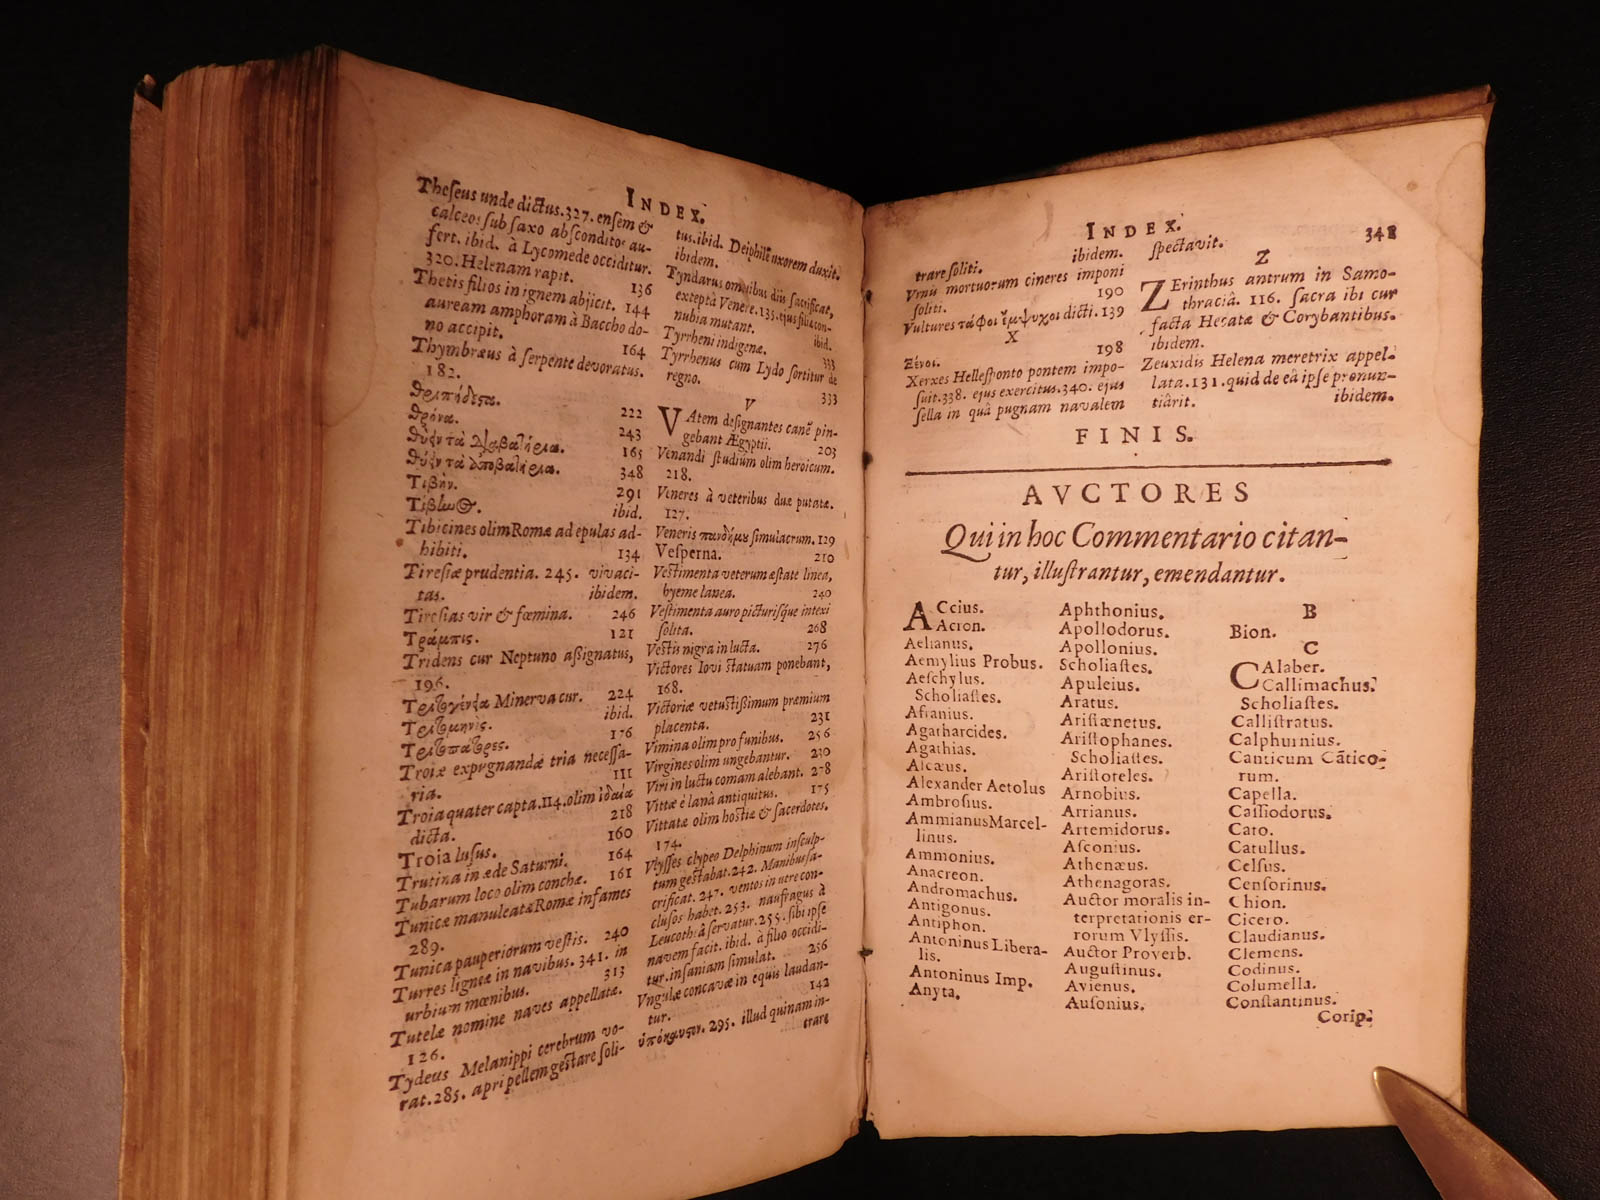 INDEX.
Theseus unde dictus. 327. ensem &
calceos sub saxo absconditos au-
fert. ibid. à Lycomede occiditur.
320. Helenam rapit. 136
Thetis filios in ignem abjicit. 144
auream amphoram à Baccho do-
no accipit. 164
Thymbræus à serpente devoratus.
182.
222
θρόνα. 243
165
348
Τιβήν. 291
ibid.
Tibicines olim Romæ ad epulas ad-
hibiti. 134
Tiresiæ prudentia. 245. vivaci-
tas. ibidem.
Tiresias vir & fœmina. 246
Τράμπις. 121
Tridens cur Neptuno assignatus,
196.
Minerva cur. 224
ibid.
176
Troiæ expugnandæ tria necessa-
ria. 111
Troia quater capta. 114. olim ἰδαία
dicta. 218
Troia lusus. 160
Trutina in æde Saturni. 164
Tubarum loco olim conchæ. 161
Tunicæ manuleatæ Romæ infames
289.
Tunica pauperiorum vestis. 240
Turres ligneæ in navibus. 341. in
urbium mœnibus. 313
Tutelæ nomine naves appellatæ.
126.
Tydeus Melanippi cerebrum vo-
rat. 285. apri pellem gestare soli-
tus. ibid. Deiphilē uxorem duxit.
ibidem.
Tyndarus omnibus diis sacrificat,
exceptâ Venere. 135. ejus filiæ con-
nubia mutant. ibid.
Tyrrheni indigenæ. 333
Tyrrhenus cum Lydo sortitur de
regno. 333
V
VAtem designantes canē pin-
gebant Ægyptii. 203
Venandi studium olim heroicum.
218.
Veneres à veteribus duæ putatæ.
127.
Veneris πανδήμου simulacrum. 129
Vesperna. 210
Vestimenta veterum æstate linea,
hyeme lanea. 240
Vestimenta auro picturisque intexi
solita. 268
Vestis nigra in luctu. 276
Victores Iovi statuam ponebant,
168.
Victoriæ vetustissimum præmium
placenta. 231
Vimina olim pro funibus. 256
Virgines olim ungebantur. 230
Viri in luctu comam alebant. 278
Vittæ è lanâ antiquitus. 175
Vittatæ olim hostiæ & sacerdotes.
174.
Vlysses clypeo Delphinum insculp-
tum gestabat. 242. Manibus sa-
crificat. 247. ventos in utre con-
clusos habet. 253. naufragus à
Leucotheâ servatur. 255. sibi ipse
navem facit. ibid. à filio occidi-
tur. insaniam simulat. 256
Vngulæ concavæ in equis laudan-
tur. 142
295. illud quinam in-
trare
INDEX. 341
trare soliti. ibidem.
Vrnis mortuorum cineres imponi
soliti. 190
Vultures τάφοι ἔμψυχοι dicti. 139
X
Ξένοι. 198
Xerxes Hellesponto pontem impo-
suit. 338. ejus exercitus. 340. ejus
sella in quâ pugnam navalem
spectavit.
Z
ZErinthus antrum in Samo-
thraciâ. 116. sacra ibi cur
facta Hecatæ & Corybantibus.
ibidem.
Zeuxidis Helena meretrix appel-
lata. 131. quid de eâ ipse pronun-
tiârit. ibidem.
FINIS.
AVCTORES
Qui in hoc Commentario citan-
tur, illustrantur, emendantur.
ACcius.
Acron.
Aelianus.
Aemylius Probus.
Aeschylus.
Scholiastes.
Afranius.
Agatharcides.
Agathias.
Alcæus.
Alexander Aetolus
Ambrosius.
Ammianus Marcel-
linus.
Ammonius.
Anacreon.
Andromachus.
Antigonus.
Antiphon.
Antoninus Libera-
lis.
Antoninus Imp.
Anyta.
Aphthonius.
Apollodorus.
Apollonius.
Scholiastes.
Apuleius.
Aratus.
Aristænetus.
Aristophanes.
Scholiastes.
Aristoteles.
Arnobius.
Arrianus.
Artemidorus.
Asconius.
Athenæus.
Athenagoras.
Auctor moralis in-
terpretationis er-
rorum Vlyssis.
Auctor Proverb.
Augustinus.
Avienus.
Ausonius.
B
Bion.
C
CAlaber.
Callimachus.
Scholiastes.
Callistratus.
Calphurnius.
Canticum Cātico-
rum.
Capella.
Cassiodorus.
Cato.
Catullus.
Celsus.
Censorinus.
Chion.
Cicero.
Claudianus.
Clemens.
Codinus.
Columella.
Constantinus.
Corip.